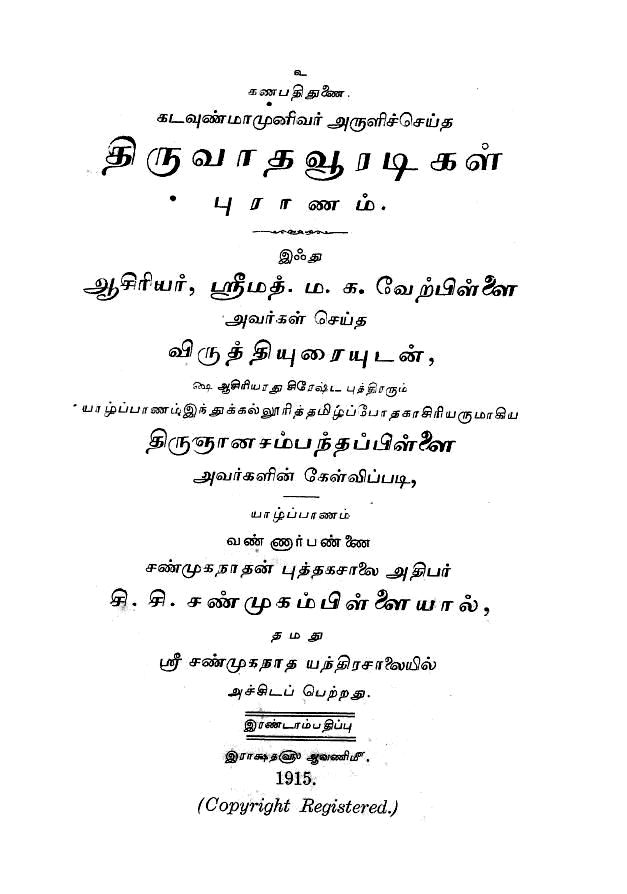 உ
கணபதிதுணை.
கடவுண்மாமுனிவர் அருளிச்செய்த
திருவாதவூரடிகள்
புராணம்.
இஃது
ஆசிரியர், ஸ்ரீமத். ம. க. வேற்பிள்ளை
அவர்கள் செய்த
விருத்தியுரையுடன்,
௸ ஆசிரியரது சிரேஷ்ட புத்திரரும்
யாழ்ப்பாணம்இந்துக்கல்லூரித்தமிழ்ப்போதகாசிரியருமாகிய
திருஞானசம்பந்தப்பிள்ளை
அவர்களின் கேள்விப்படி,
யாழ்ப்பாணம்
வண்ணார்பண்ணை
சண்முகநாதன் புத்தகசாலை அதிபர்
சி. சி. சண்முகம்பிள்ளையால்,
தமது
ஸ்ரீ சண்முகநாத யந்திரசாலையில்
அச்சிடப் பெற்றது.
இரண்டாம்பதிப்பு
இராக்ஷத௵ ஆவணி௴.
1915.
(Copyright Registered.)